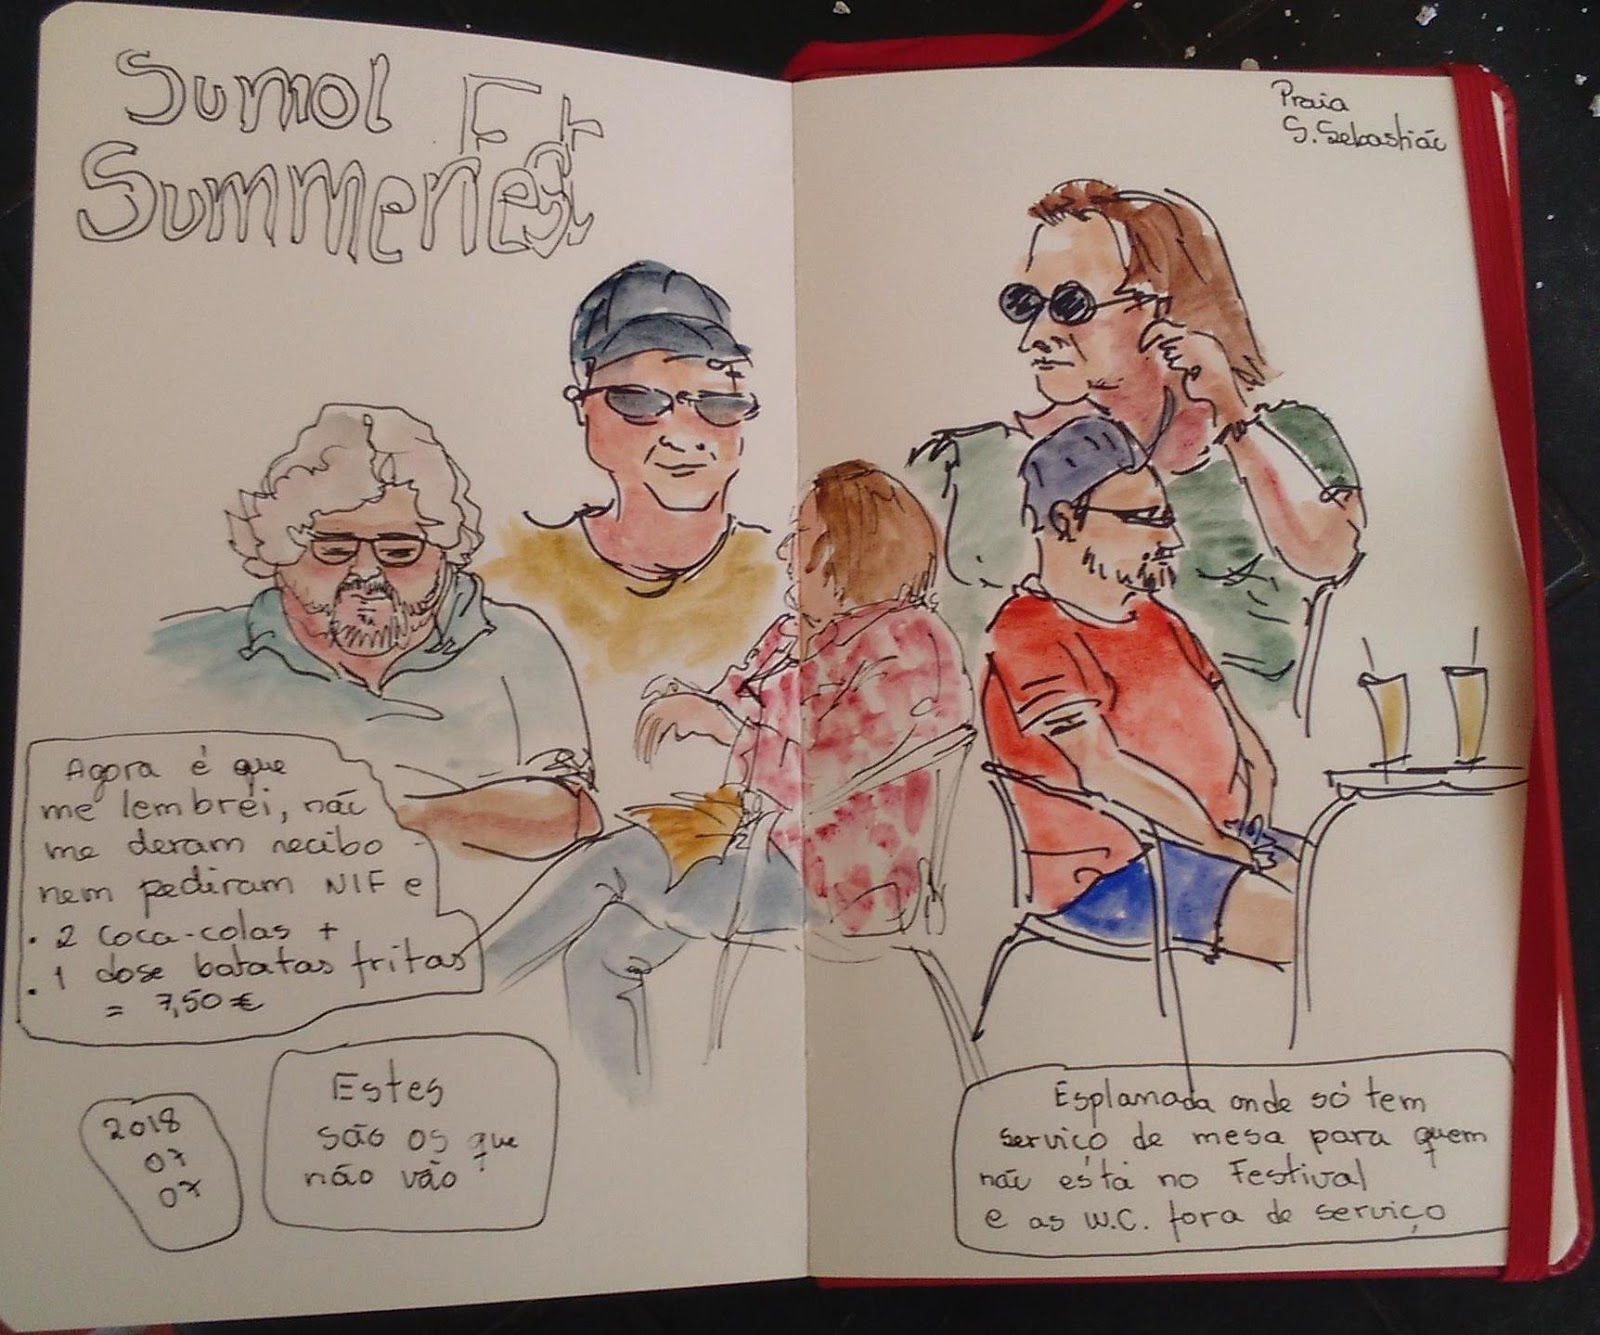 Sumol
Summer Fest
Praia
S. Sebastião
Agora é que
me lembrei, não
me deram recibo
nem pediram NIF e
• 2 coca-colas +
• 1 dose batatas fritas
= 7,50 €
2018
07
07
Estes
são os que
não vão
Esplanada onde só tem
serviço de mesa para quem
não está no Festival
e as W.C. fora de serviço